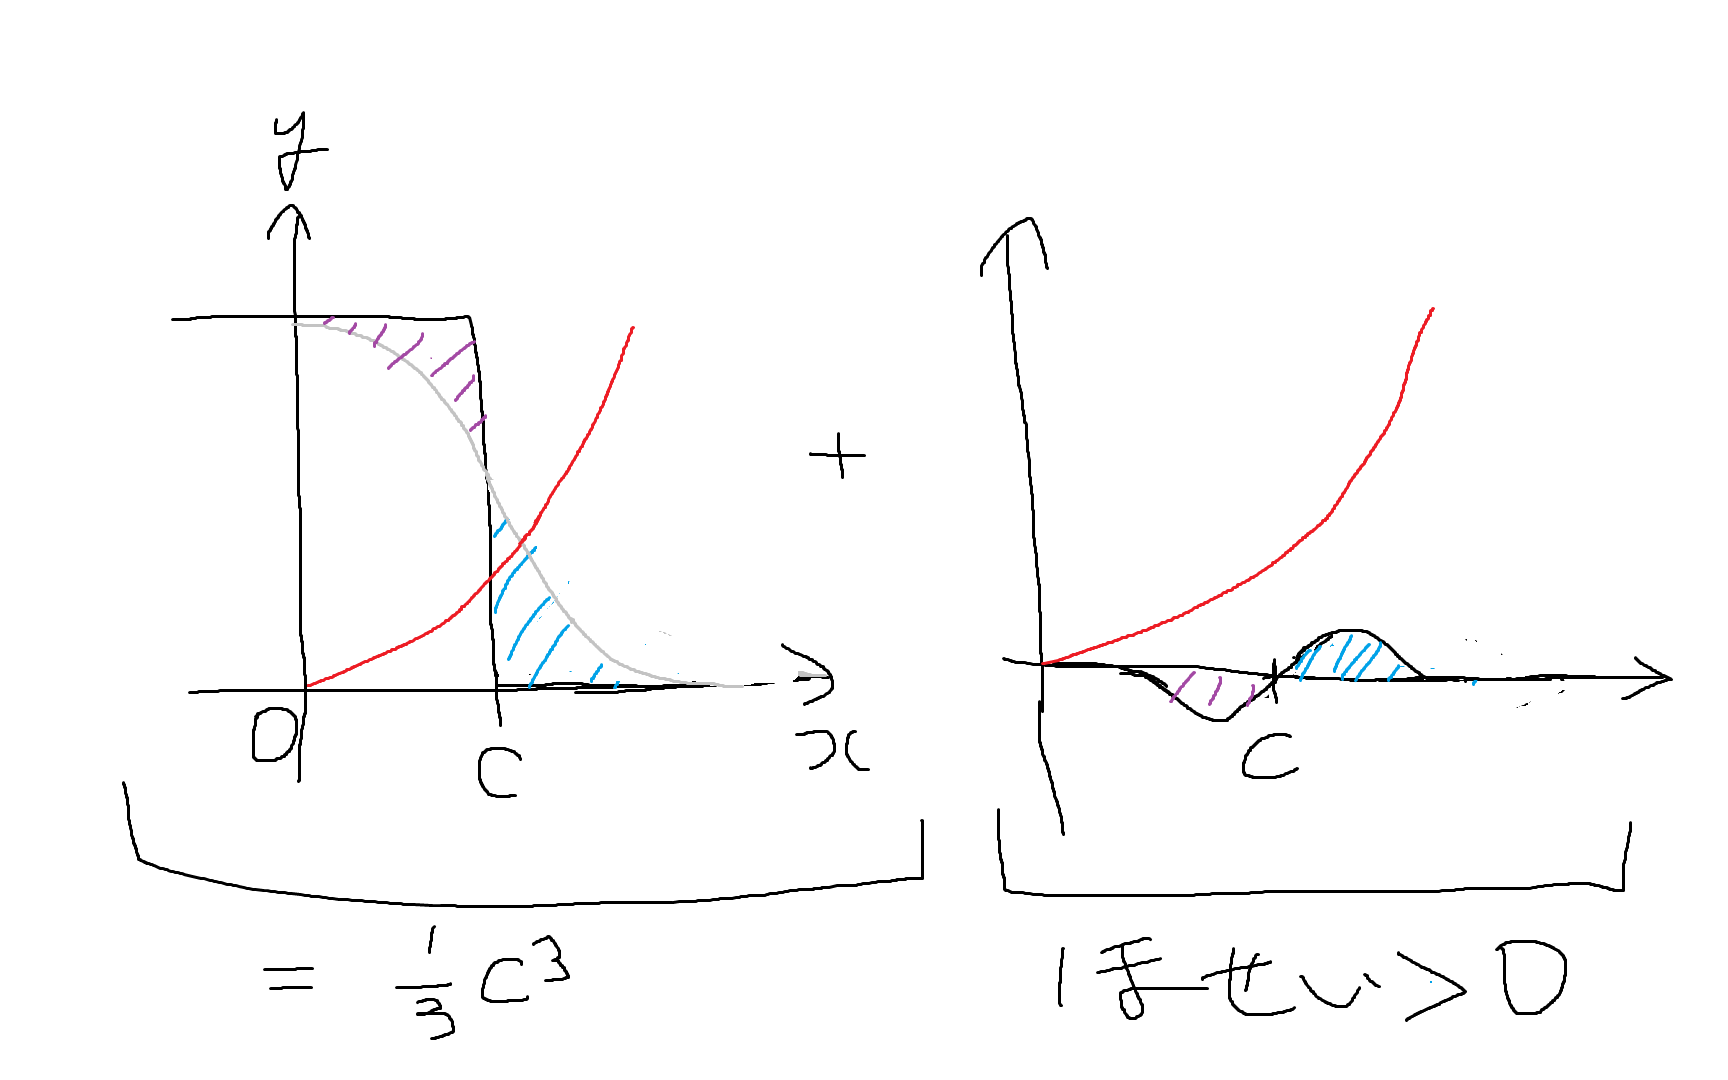 y
+
O
C
x
C
= 1/3 C³
ほせい > 0